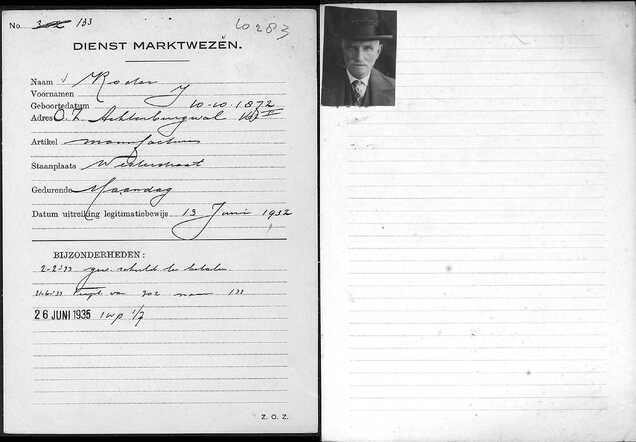 No. 302 133
60283
DIENST MARKTWEZEN.
Naam Koster
Voornamen J
Geboortedatum 10-10-1872
Adres O. Z. Achterburgwal
Artikel manufacturen
Staanplaats Westerstraat
Gedurende Maandag
Datum uitreiking legitimatiebewijs 13 Juni 1932
BIJZONDERHEDEN:
2-2-'33 gew. schuld te betalen
van 302 naar 133
26 JUNI 1935 1/7
Z. O. Z.